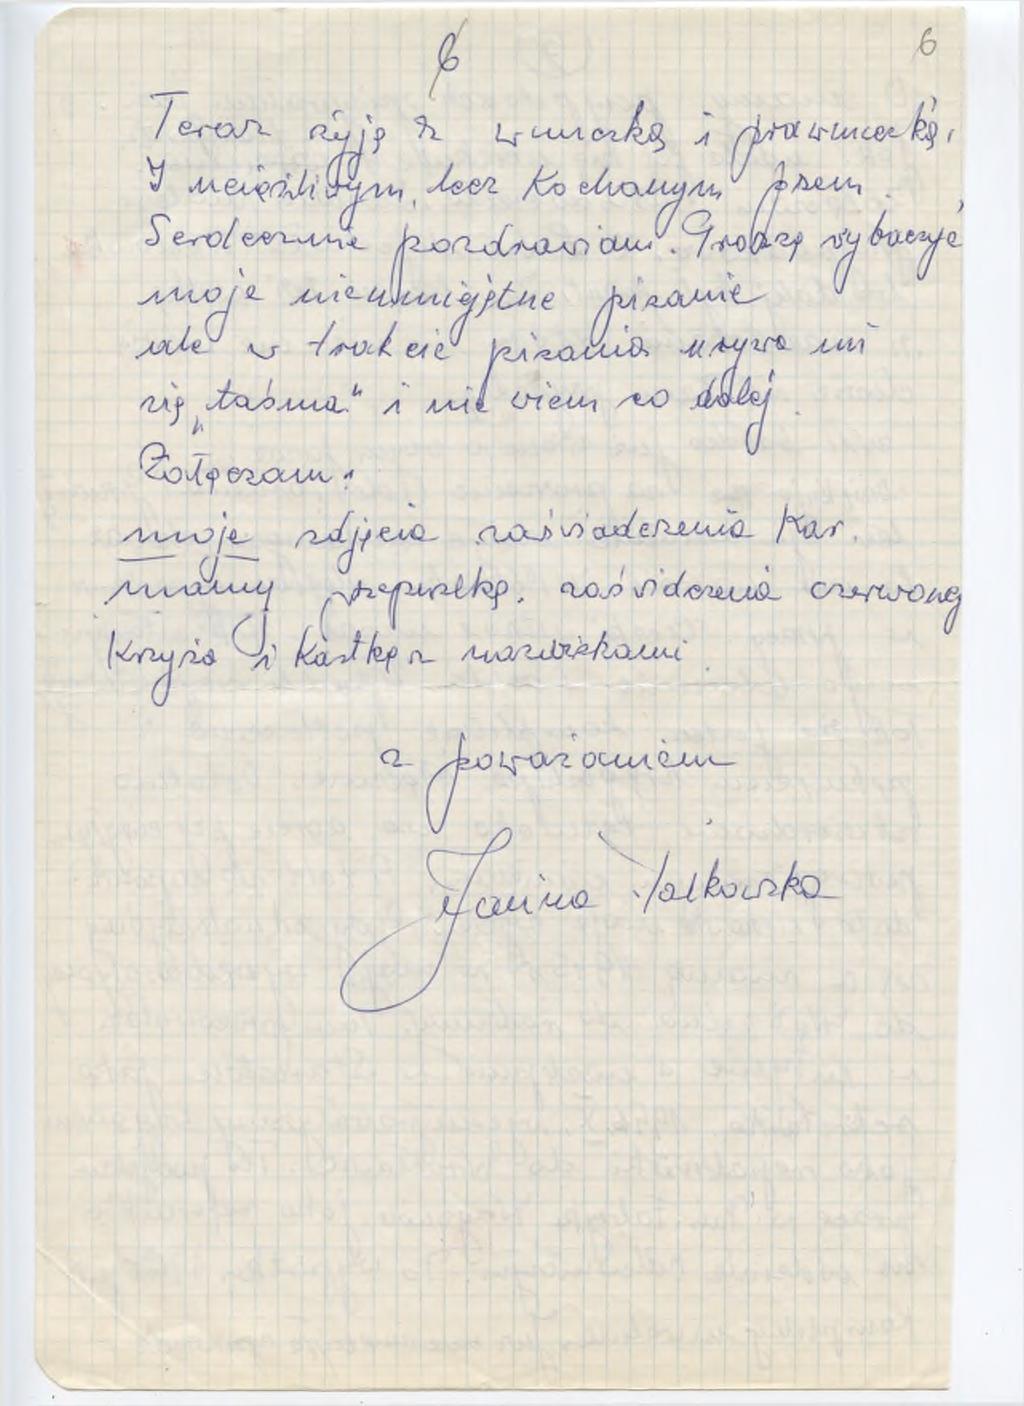 6 6
Teraz żyję z wnuczką i prawnuczką,
I uciążliwym, lecz Kochanym psem.
Serdecznie pozdrawiam. Proszę wybaczyć
moje nieumiejętne pisanie
ale w trakcie pisania urywa mi
się „taśma" i nie wiem co dalej.
Załączam:
moje zdjęcia zaświadczenia Kar.
mamy przepustkę, zaświdczenia czerwong
Krzyża i Kartkę z nazwiskami.
z poważaniem
Janina Jatkowska